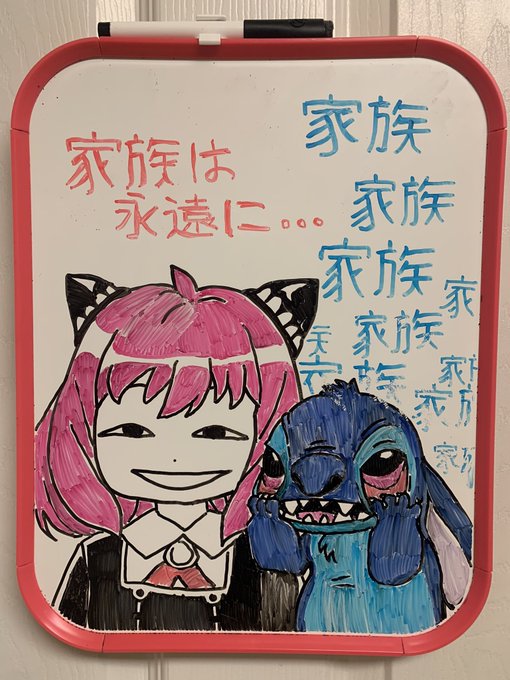 家族は
永遠に...
家族
家族
家族
家族
家族
家
家族
家族
家族